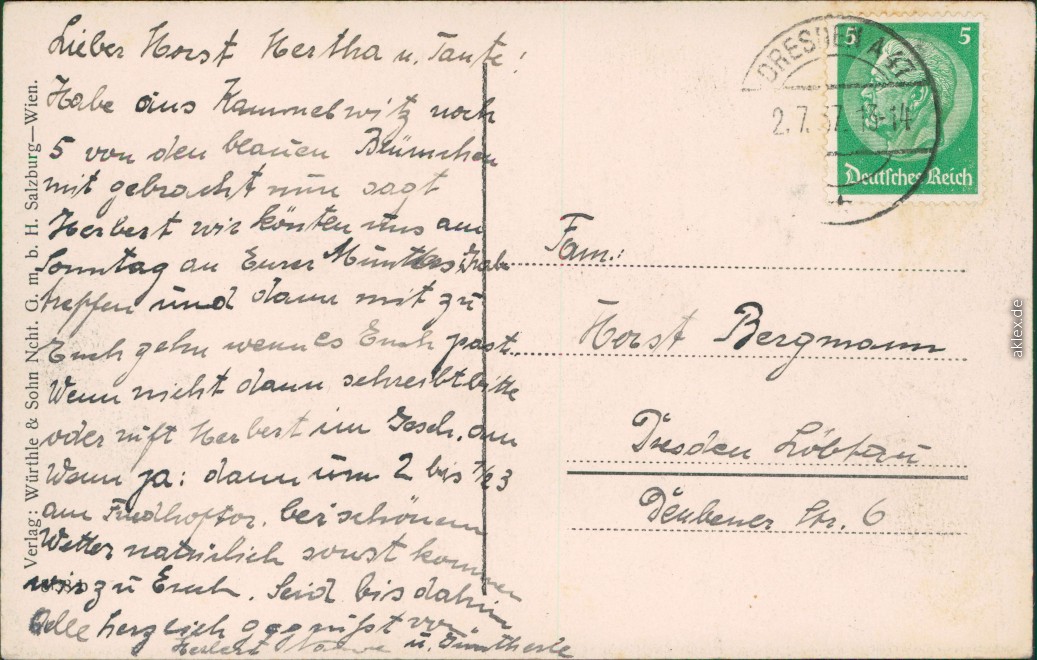 Lieber Horst Hertha u. Tante!
Habe aus Kammelwitz noch
5 von den blauen Blümchen
mit gebracht nun sagt
Herbert wir könten uns am
Sonntag an Eurer
treffen und dann mit zu
Euch gehn wenn es Euch past.
Wenn nicht dann schreibt bitte
oder ruft Herbert im Gesch. an
Wenn ja: dann um 2 bis 1/23
am Friedhoftor. bei schönem
Wetter natürlich sonst kommen
wir zu Euch. Seid bis dahin
Alle herzlich gegrüßt von
Herbert u. Güntherle
Verlag: Würthle & Sohn Ncht. G. m. b. H. Salzburg—Wien.
DRESDEN A 47
2.7.37. 13-14
5 5
Deutsches Reich
Fam.:
Horst Bergmann
Dresden Löbtau
Deubener Str. 6
aklex.de